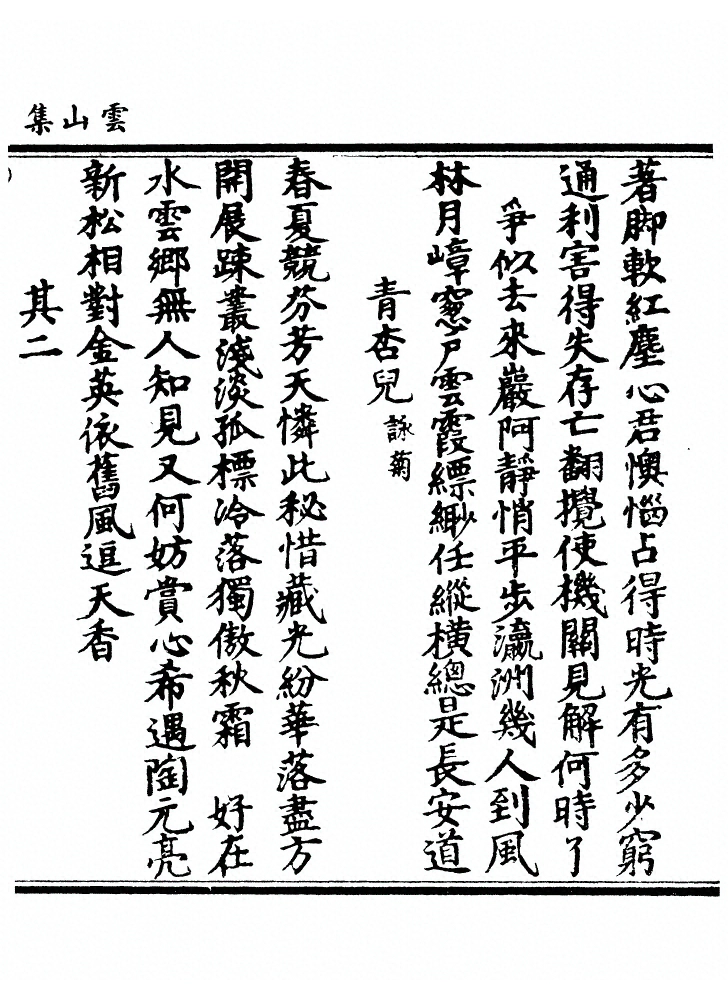 雲山集
著脚軟紅塵心君懊惱占得時光有多少窮
通利害得失存亡翻攪使機關見解何時了
爭似去來巖阿靜悄平步瀛洲幾人到風
林月嶂窻戶雲霞縹緲任縱橫總是長安道
青杏兒 詠菊
春夏競芬芳天憐此秘惜藏光紛華落盡方
開展踈叢淺淡孤標冷落獨傲秋霜 好在
水雲鄉無人知見又何妨賞心希遇陶元亮
新松相對金英依舊風逗天香
其二